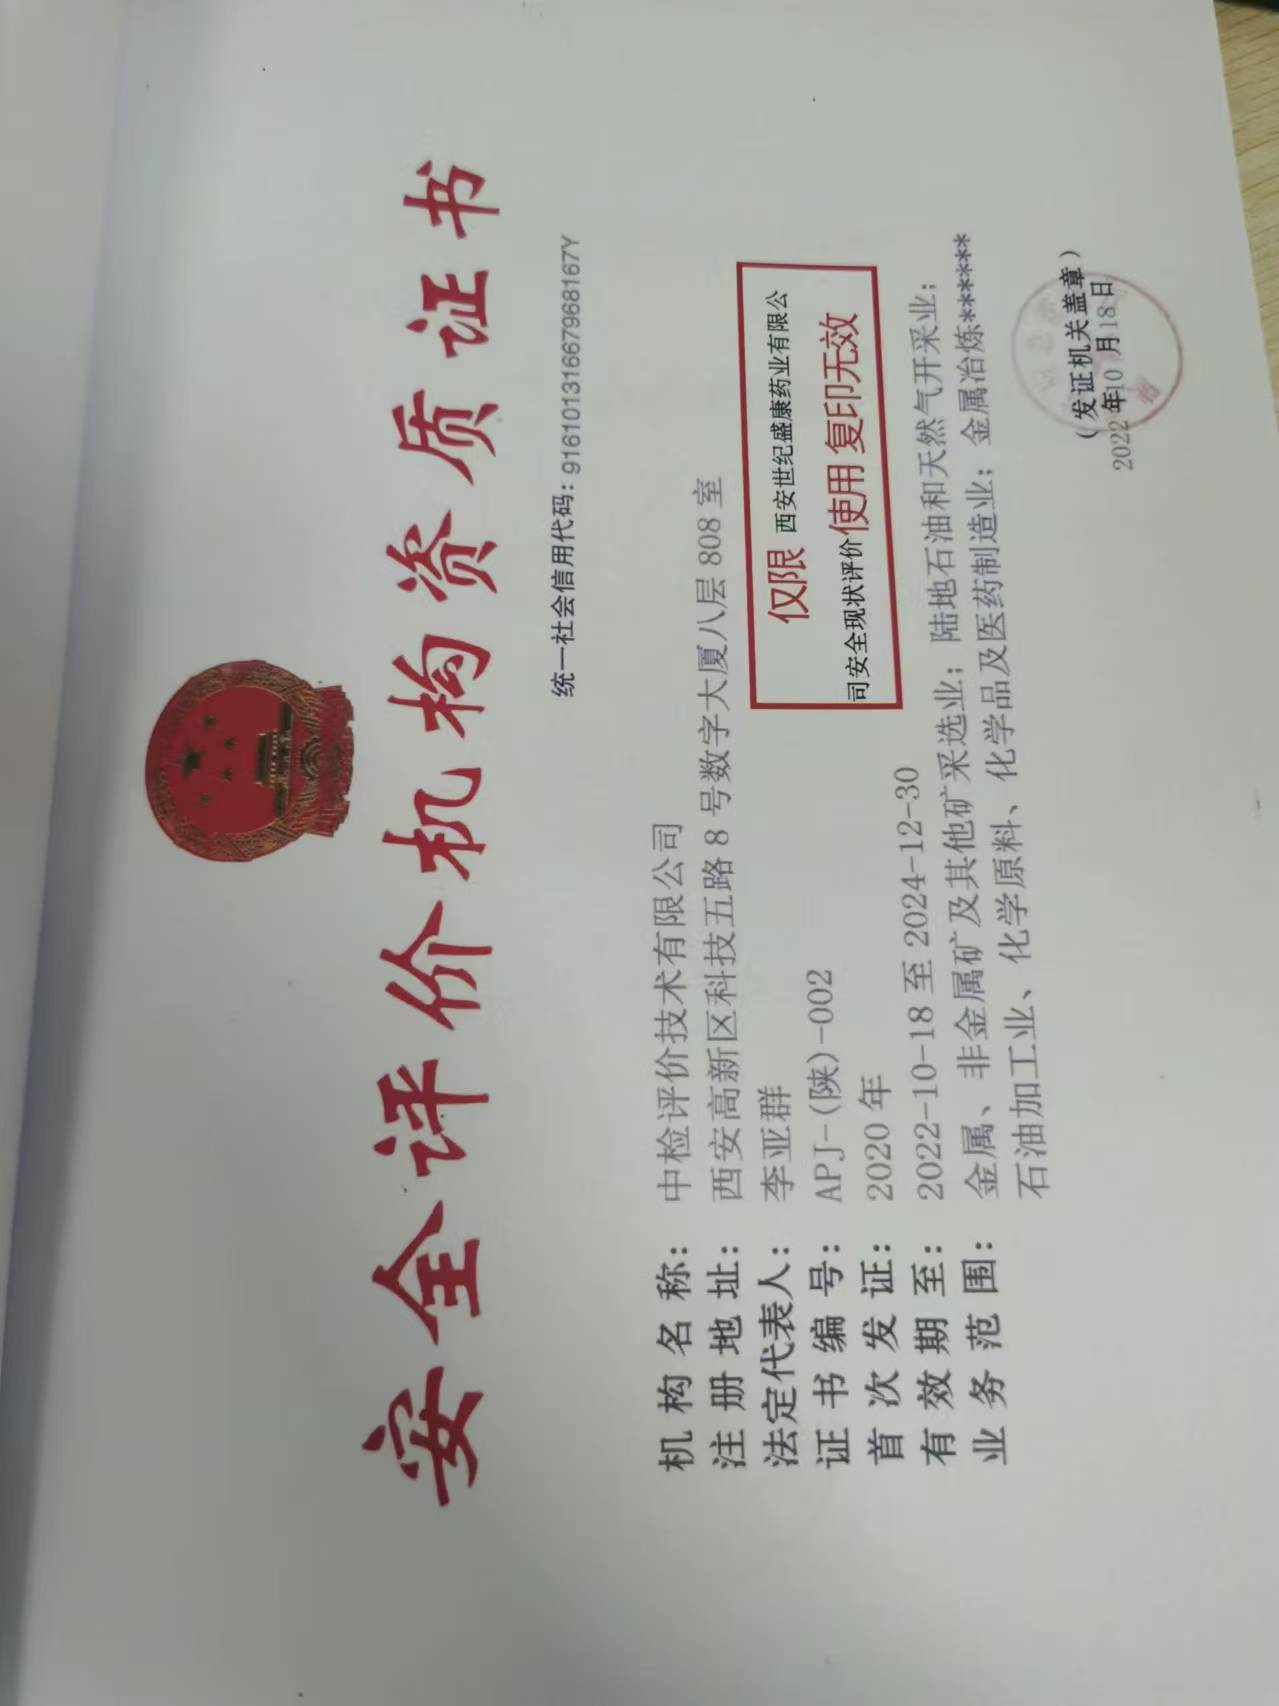 安全评价机构资质证书
统一社会信用代码：91610131667968167Y
机构名称：中检评价技术有限公司
注册地址：西安高新区科技五路8号数字大厦八层808室
法定代表人：李亚群
证书编号：APJ-(陕)-002
首次发证：2020年
有效期至：2022-10-18至2024-12-30
业务范围：金属、非金属矿及其他矿采选业；陆地石油和天然气开采业；
石油加工业、化学原料、化学品及医药制造业；金属冶炼******
仅限 西安世纪盛康药业有限公
司安全现状评价使用 复印无效
（发证机关盖章）
2022年10月18日